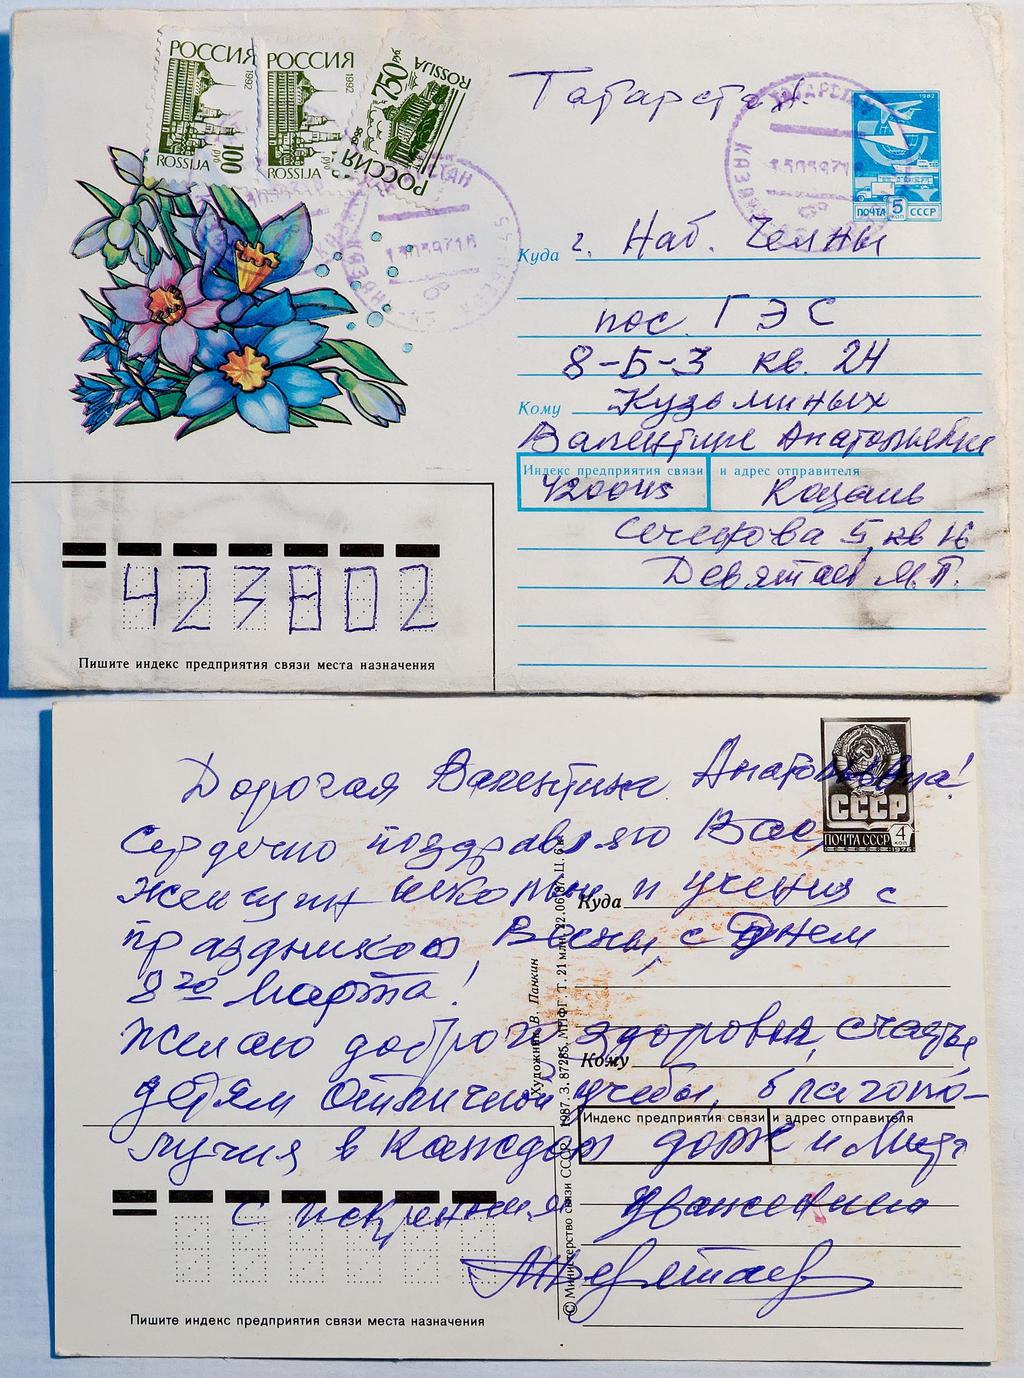 РОССИЯ
1992
100 руб
ROSSIJA
РОССИЯ
1992
руб
ROSSIJA
РОССИЯ
750 руб
ROSSIJA
Татарстан.
1982
ПОЧТА 5 коп СССР
Куда г. Наб. Челны
пос. ГЭС
8-Б-3 кв. 24
Кому Кузьминых
Валентине Анатольевне
Индекс предприятия связи и адрес отправителя
420045 Казань
5 кв 16
Девятаев М.П.
423802
Пишите индекс предприятия связи места назначения
СССР
ПОЧТА СССР 4 коп
1976
Дорогая Валентина Анатольевна!
Сердечно поздравляю Вас,
женщин школы и учениц с
праздником Весны, с Днем
8го Марта!
Желаю доброго здоровья, счастья
детям отличной учебы, благопо-
лучия в каждом доме и Мира
С искренним уважением
МДевятаев
Куда
Кому
Индекс предприятия связи и адрес отправителя
Художник В. Панкин
© Министерство связи СССР. 1987. З. 87285. МПФГ. Т. 21 млн.
Пишите индекс предприятия связи места назначения